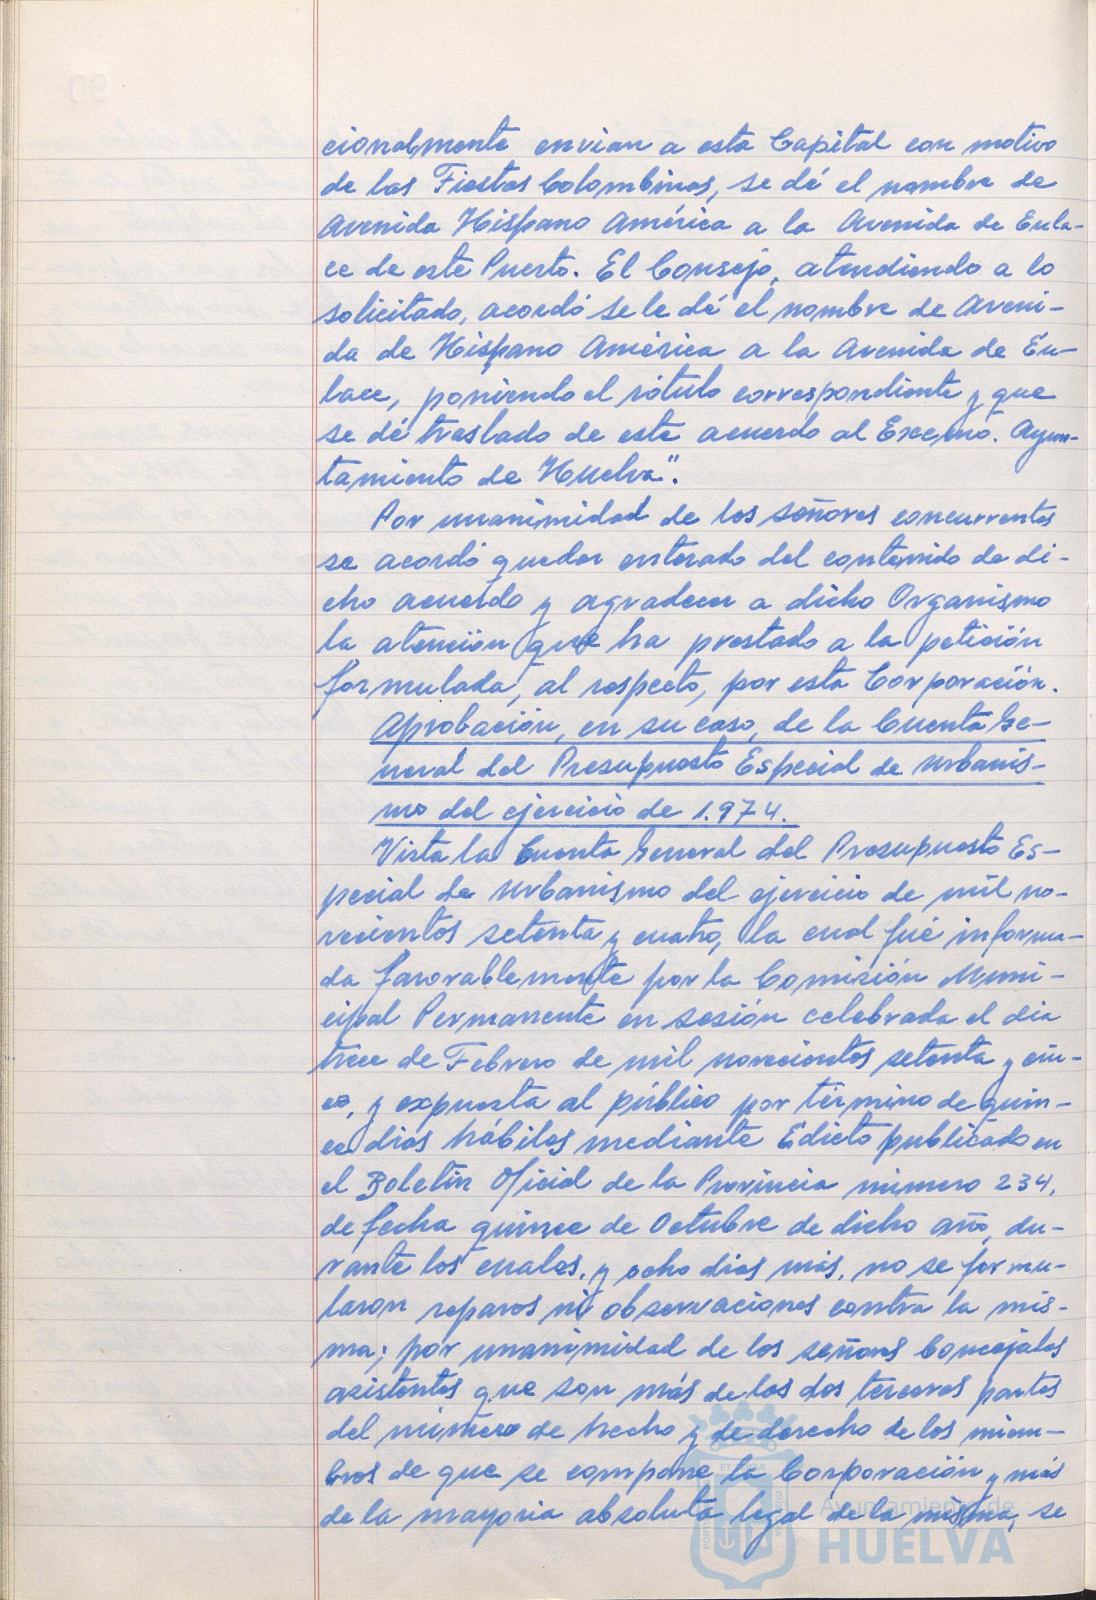 cionalmente envian a esta Capital con motivo
de las Fiestas Colombinas, se dé el nombre de
Avenida Hispano América a la Avenida de Enla-
ce de este Puerto. El Consejo, atendiendo a lo
solicitado, acordó se le dé el nombre de Aveni-
da de Hispano América a la Avenida de En-
lace, poniendo el rótulo correspondiente y que
se dé traslado de este acuerdo al Excmo. Ayun-
tamiento de Huelva".
Por unanimidad de los señores concurrentes
se acordó quedar enterado del contenido de di-
cho acuerdo y agradecer a dicho Organismo
la atención que ha prestado a la petición
formulada, al respecto, por esta Corporación.
Aprobación, en su caso, de la Cuenta Ge-
neral del Presupuesto Especial de Urbanis-
mo del ejercicio de 1.974.
Vista la Cuenta General del Presupuesto Es-
pecial de Urbanismo del ejercicio de mil no-
vecientos setenta y cuatro, la cual fué informa-
da favorablemente por la Comisión Muni-
cipal Permanente en sesión celebrada el dia
trece de Febrero de mil novecientos setenta y cin-
co, y expuesta al público por término de quin-
ce dias hábiles mediante Edicto publicado en
el Boletin Oficial de la Provincia número 234,
de fecha quince de Octubre de dicho año, du-
rante los cuales, y ocho dias más, no se formu-
laron reparos ni observaciones contra la mis-
ma; por unanimidad de los señores Concejales
asistentes que son más de las dos terceras partes
del número de hecho y de derecho de los miem-
bros de que se compone la Corporación y más
de la mayoria absoluta legal de la misma, se
Ayuntamiento de
HUELVA